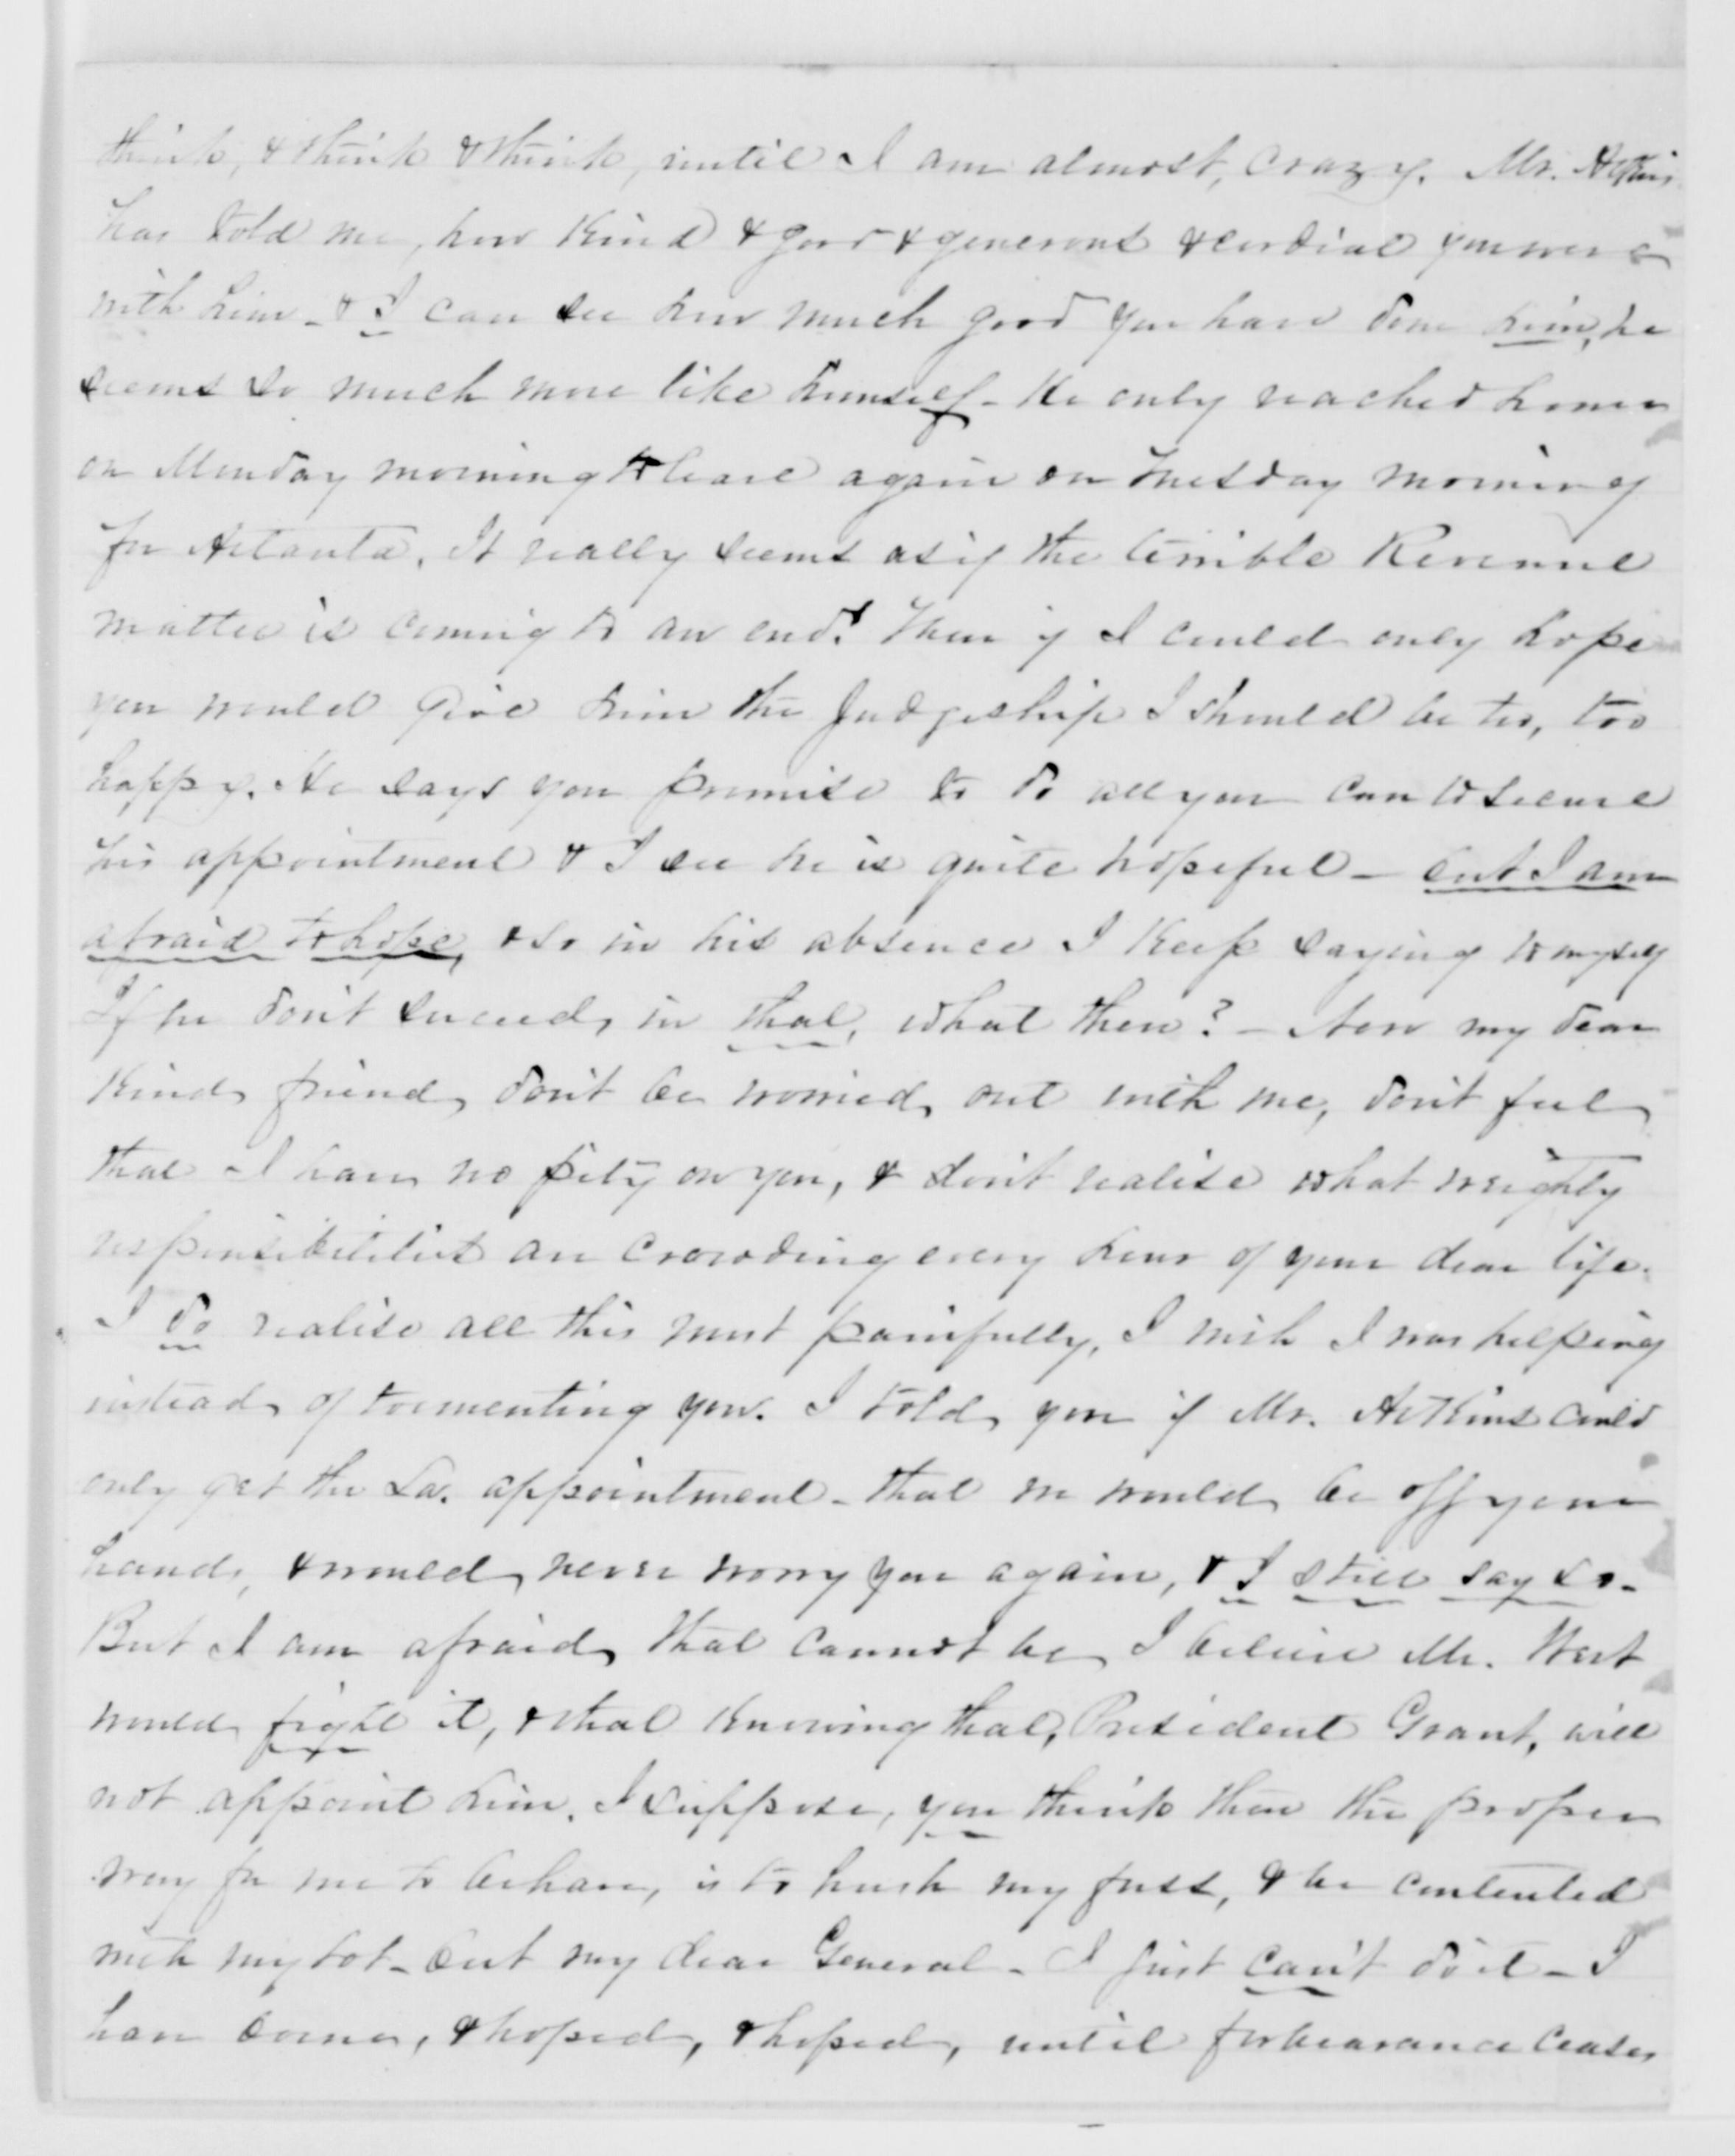 think, & think & think, until I am almost, crazy. Mr. Atkins
has told me, how kind & good & generous & cordial you were
with him - & I can see how much good you have done him, he
seems so much more like himself - He only reached home
on Monday morning to leave again on Tuesday morning
for Atlanta. It really seems as if the terrible Revenue
matter is coming to an end! Then if I could only hope
you would give him the Judgeship I should be too, too
happy. He says you promise to do all you can to secure
his appointment & I see he is quite hopeful - but I am
afraid to hope, & so in his absence I keep saying to myself
If he don't succeed, in that, what then? - Now my dear
kind friend, don't be worried, out with me, don't feel
that I have no pity on you, & don't realise what weighty
responsibilities are crowding every hour of your dear life.
I do realise all this most painfully, I wish I was helping
instead of tormenting you. I told you if Mr. Atkins could
only get the La. appointment - that we would be off your
hands, & would never worry you again, & I still say so -
But I am afraid that cannot be, I believe Mr. West
would fight it, & that knowing that, President Grant, will
not appoint him. I suppose, you think then the proper
way for me to behave, is to hush my fuss, & be contented
with my lot - but my dear General - I just can't do it - I
have borne, & hoped, & hoped, until forbearance ceases